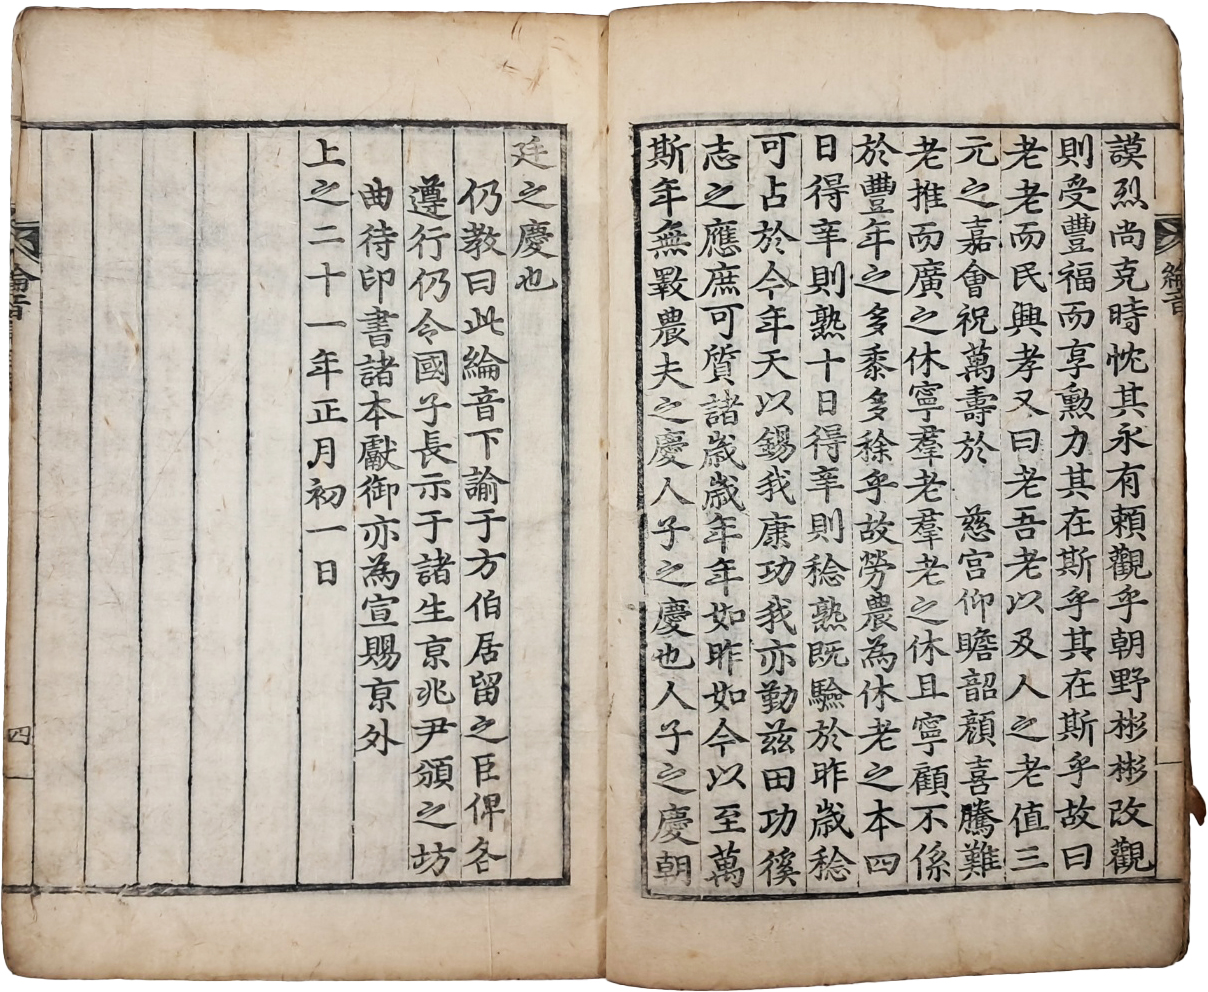 謨烈尚克時忱其永有賴觀乎朝野彬彬改觀
則受豐福而享勲力其在斯乎其在斯乎故曰
老老而民興孝又曰老吾老以及人之老值三
元之嘉會祝萬壽於 慈宮仰瞻韶顏喜騰難
老推而廣之休寧羣老羣老之休且寧顧不係
於豐年之多黍多稌乎故勞農為休老之本四
日得辛則熟十日得辛則稔熟既驗於昨歲稔
可占於今年天以錫我康功我亦勤茲田功徯
志之應庶可質諸歲歲年年如昨如今以至萬
斯年無斁農夫之慶人子之慶也人子之慶朝
廷之慶也
仍教曰此綸音下諭于方伯居留之臣俾各
遵行仍令國子長示于諸生京兆尹頒之坊
曲待印書諸本獻御亦為宣賜京外
上之二十一年正月初一日
綸音
綸音
四